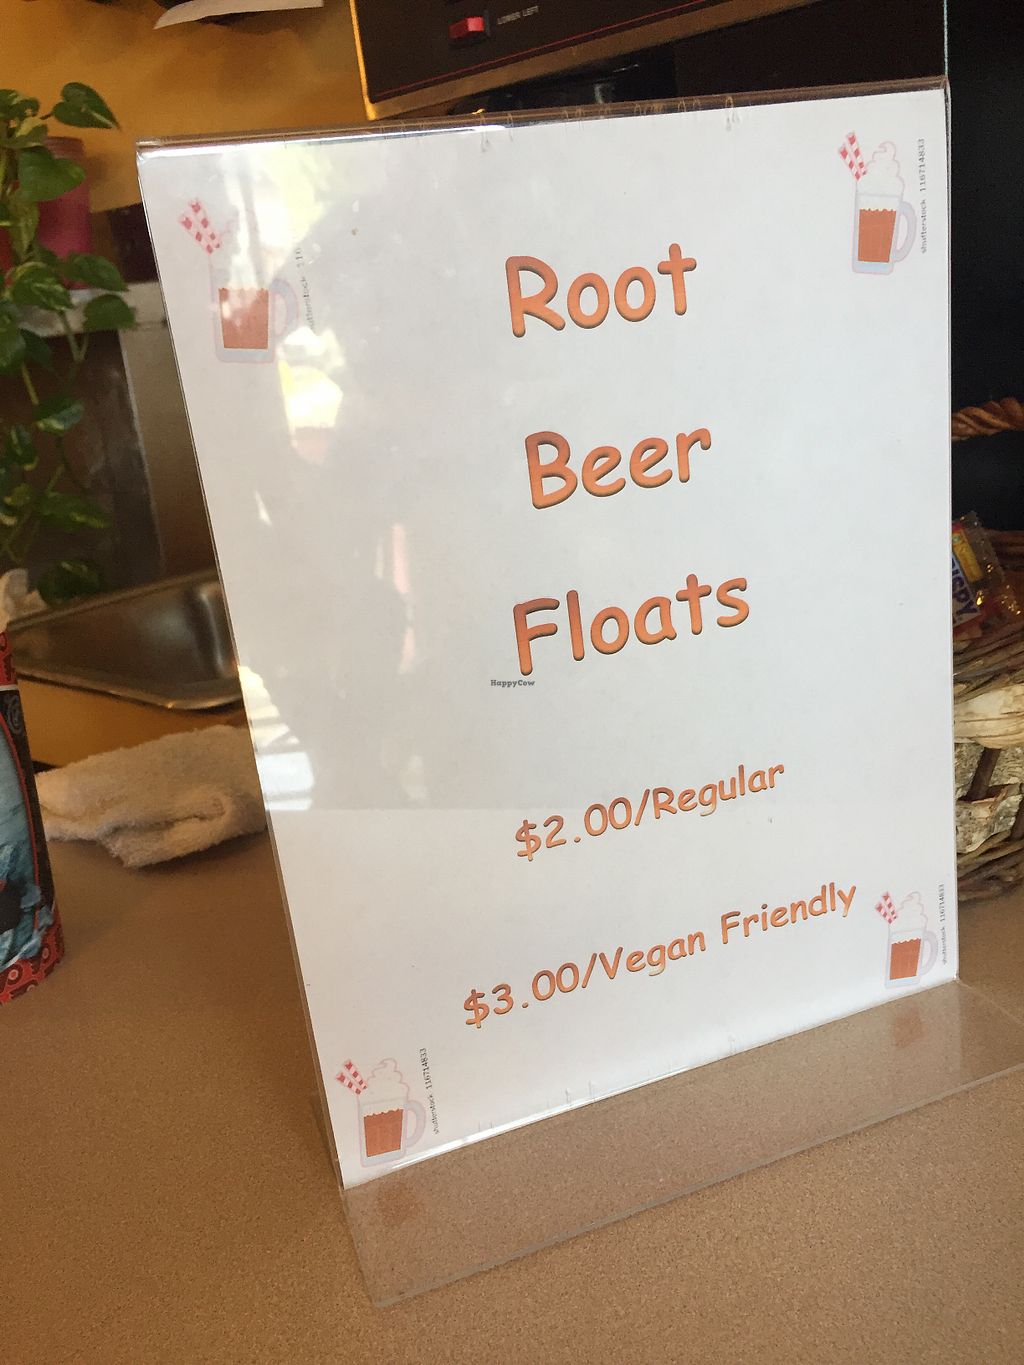 LOWER LEFT
shutterstock 116714833
Root
Beer
Floats
HappyCow
$2.00/Regular
$3.00/Vegan Friendly
shutterstock 116714833
shutterstock 116714833